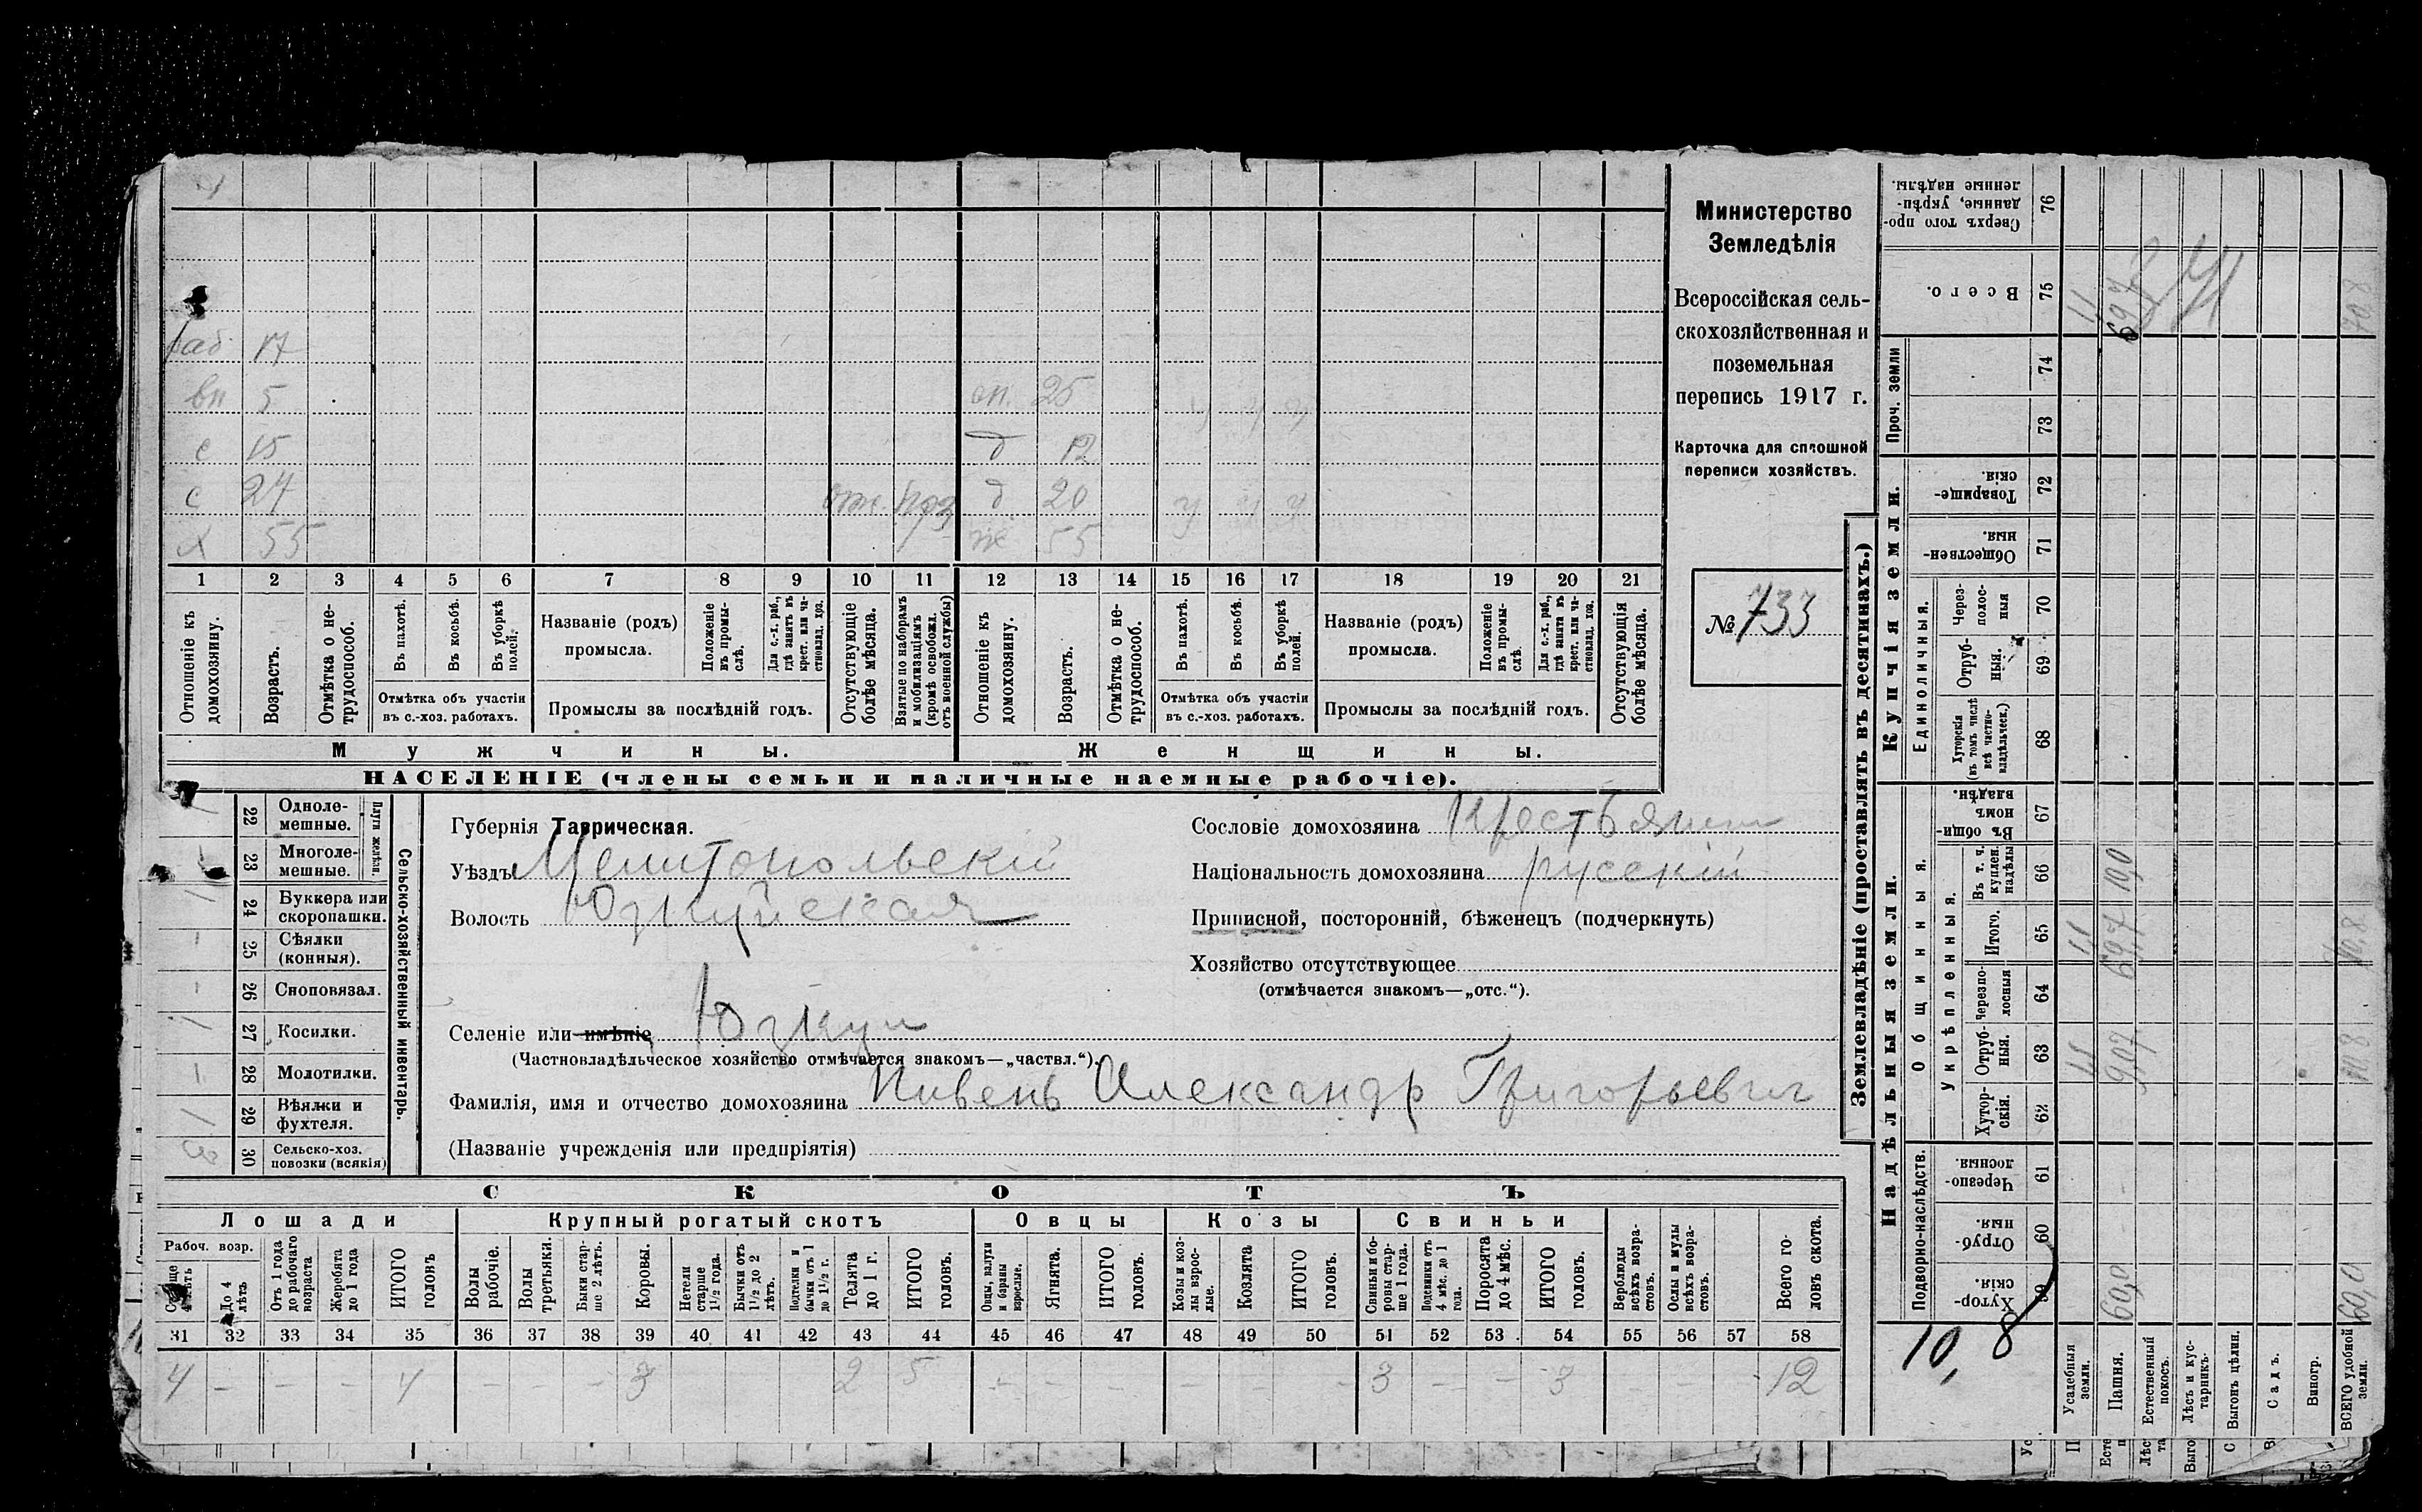 раб 17
вп 5
оп. 25
с 15
д 12
с 24
д 20 у у у
х 55
ж 55
1 2 3 4 5 6 7 8 9 10 11 12 13 14 15 16 17 18 19 20 21
Отношеніе къ домохозяину.
Возрастъ.
Отмѣтка о не-трудоспособ.
Въ пахотѣ.
Въ косьбѣ.
Въ уборкѣ полей.
Отмѣтка объ участіи
въ с.-хоз. работахъ.
Названіе (родъ)
промысла.
Положеніе въ промы-слѣ.
Для с.-х. раб., гдѣ занятъ въ крест. или ча-стновлад. хоз.
Промыслы за послѣдній годъ.
Отсутствующіе болѣе мѣсяца.
Взятые по наборамъ и мобилизаціямъ (кромѣ освобожд. отъ военной службы)
Отношеніе къ домохозяину.
Возрастъ.
Отмѣтка о не-трудоспособ.
Въ пахотѣ.
Въ косьбѣ.
Въ уборкѣ полей.
Отмѣтка объ участіи
въ с.-хоз. работахъ.
Названіе (родъ)
промысла.
Положеніе въ промы-слѣ.
Для с.-х. раб., гдѣ занята въ крест. или ча-стновлад. хоз.
Промыслы за послѣдній годъ.
Отсутствующія болѣе мѣсяца.
Мужчины.
Женщины.
НАСЕЛЕНІЕ (члены семьи и наличные наемные рабочіе).
Министерство
Земледѣлія
Всероссійская сель-
скохозяйственная и
поземельная
перепись 1917 г.
Карточка для сплошной
переписи хозяйствъ.
№ 733
Сельско-хозяйственный инвентарь.
Плуги желѣзн.
22 Одноле-
мешные.
23 Многоле-
мешные.
24 Буккера или
скоропашки.
25 Сѣялки
(конныя).
26 Сноповязал.
27 Косилки.
28 Молотилки.
29 Вѣялки и
фухтеля.
30 Сельско-хоз.
повозки (всякія)
Губернія Таврическая.
Уѣздъ Мелитопольскій
Волость Юзкуйская
Селеніе или имѣніе Юзкуи
(Частновладѣльческое хозяйство отмѣчается знакомъ—„частвл.“).
Фамилія, имя и отчество домохозяина Пивень Александр Григорьевич
(Названіе учрежденія или предпріятія)
Сословіе домохозяина Крестьянин
Національность домохозяина русскій
Приписной, посторонній, бѣженецъ (подчеркнуть)
Хозяйство отсутствующее
(отмѣчается знакомъ—„отс.“).
СКОТЪ
Лошади
Крупный рогатый скотъ
Овцы
Козы
Свиньи
Рабоч. возр.
До 4 лѣтъ
Отъ 1 года до рабочаго возраста
Жеребята до 1 года
ИТОГО головъ
Волы рабочіе.
Волы третьяки.
Быки стар-ше 2 лѣтъ.
Коровы.
Нетели старше 1½ года.
Бычки отъ 1½ до 2 лѣтъ.
Подтелки и бычки отъ 1 до 1½ г.
Телята до 1 г.
ИТОГО головъ.
Овцы, валухи и бараны взрослые.
Ягнята.
ИТОГО головъ.
Козы и коз-лы взрос-лые.
Козлята
ИТОГО головъ.
Свиньи и бо-ровы стар-ше 1 года.
Подсвинки отъ 4 мѣс. до 1 года.
Поросята до 4 мѣс.
ИТОГО головъ.
Верблюды всѣхъ возра-стовъ.
Ослы и мулы всѣхъ возра-стовъ.
Всего го-ловъ скота.
31 32 33 34 35 36 37 38 39 40 41 42 43 44 45 46 47 48 49 50 51 52 53 54 55 56 57 58
4 – – – 4 – – – 3 2 5 – – – – – – 3 – – 3 – – – 12
Землевладѣніе (проставлять въ десятинахъ.)
Купчія земли.
Надѣльныя земли.
Проч. земли
Единоличныя.
Общинныя.
Укрѣпленныя.
Подворно-наслѣдств.
Сверхъ того про-данные, укрѣп-ленные надѣлы. 76
Всего. 75
74
73
Товарище-скія. 72
Обществен-ныя. 71
Через-полос-ныя 70
Отруб-ныя. 69
Хуторскія (въ томъ числѣ всѣ частно-владѣльческ.) 68
Въ общи-номъ владѣн. 67
Въ т. ч. куплен. надѣлы 66
Итого. 65
Черезпо-лосныя 64
Отруб-ныя. 63
Хутор-скія. 62
Черезпо-лосныя. 61
Отруб-ныя. 60
Хутор-скія. 59
Усадебныя земли.
Пашня.
Естественный покосъ.
Лѣсъ и кус-тарникъ.
Выгонъ цѣлин.
Садъ.
Виногр.
ВСЕГО удобной земли.
10,8
60,0
60,0
10,8
69,7
10,0
70,8